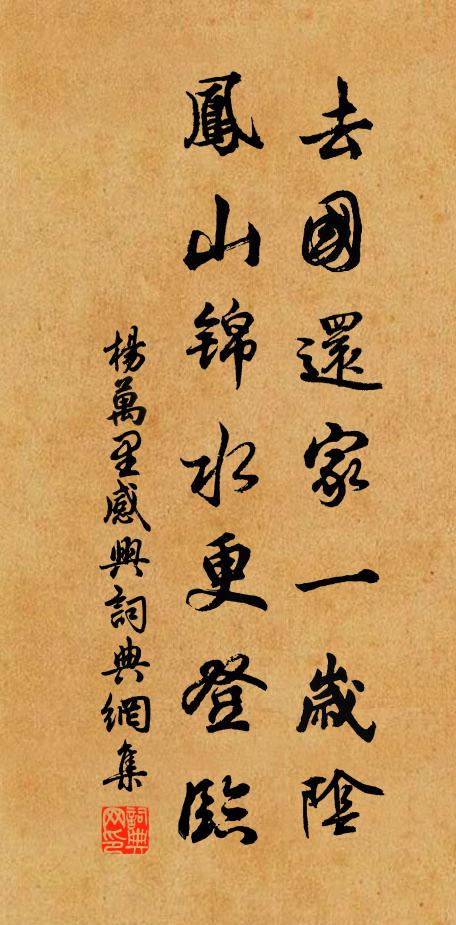 去國還家一歲陰
鳳山锦水更登臨
楊萬里感興詞典網集
詞典網印